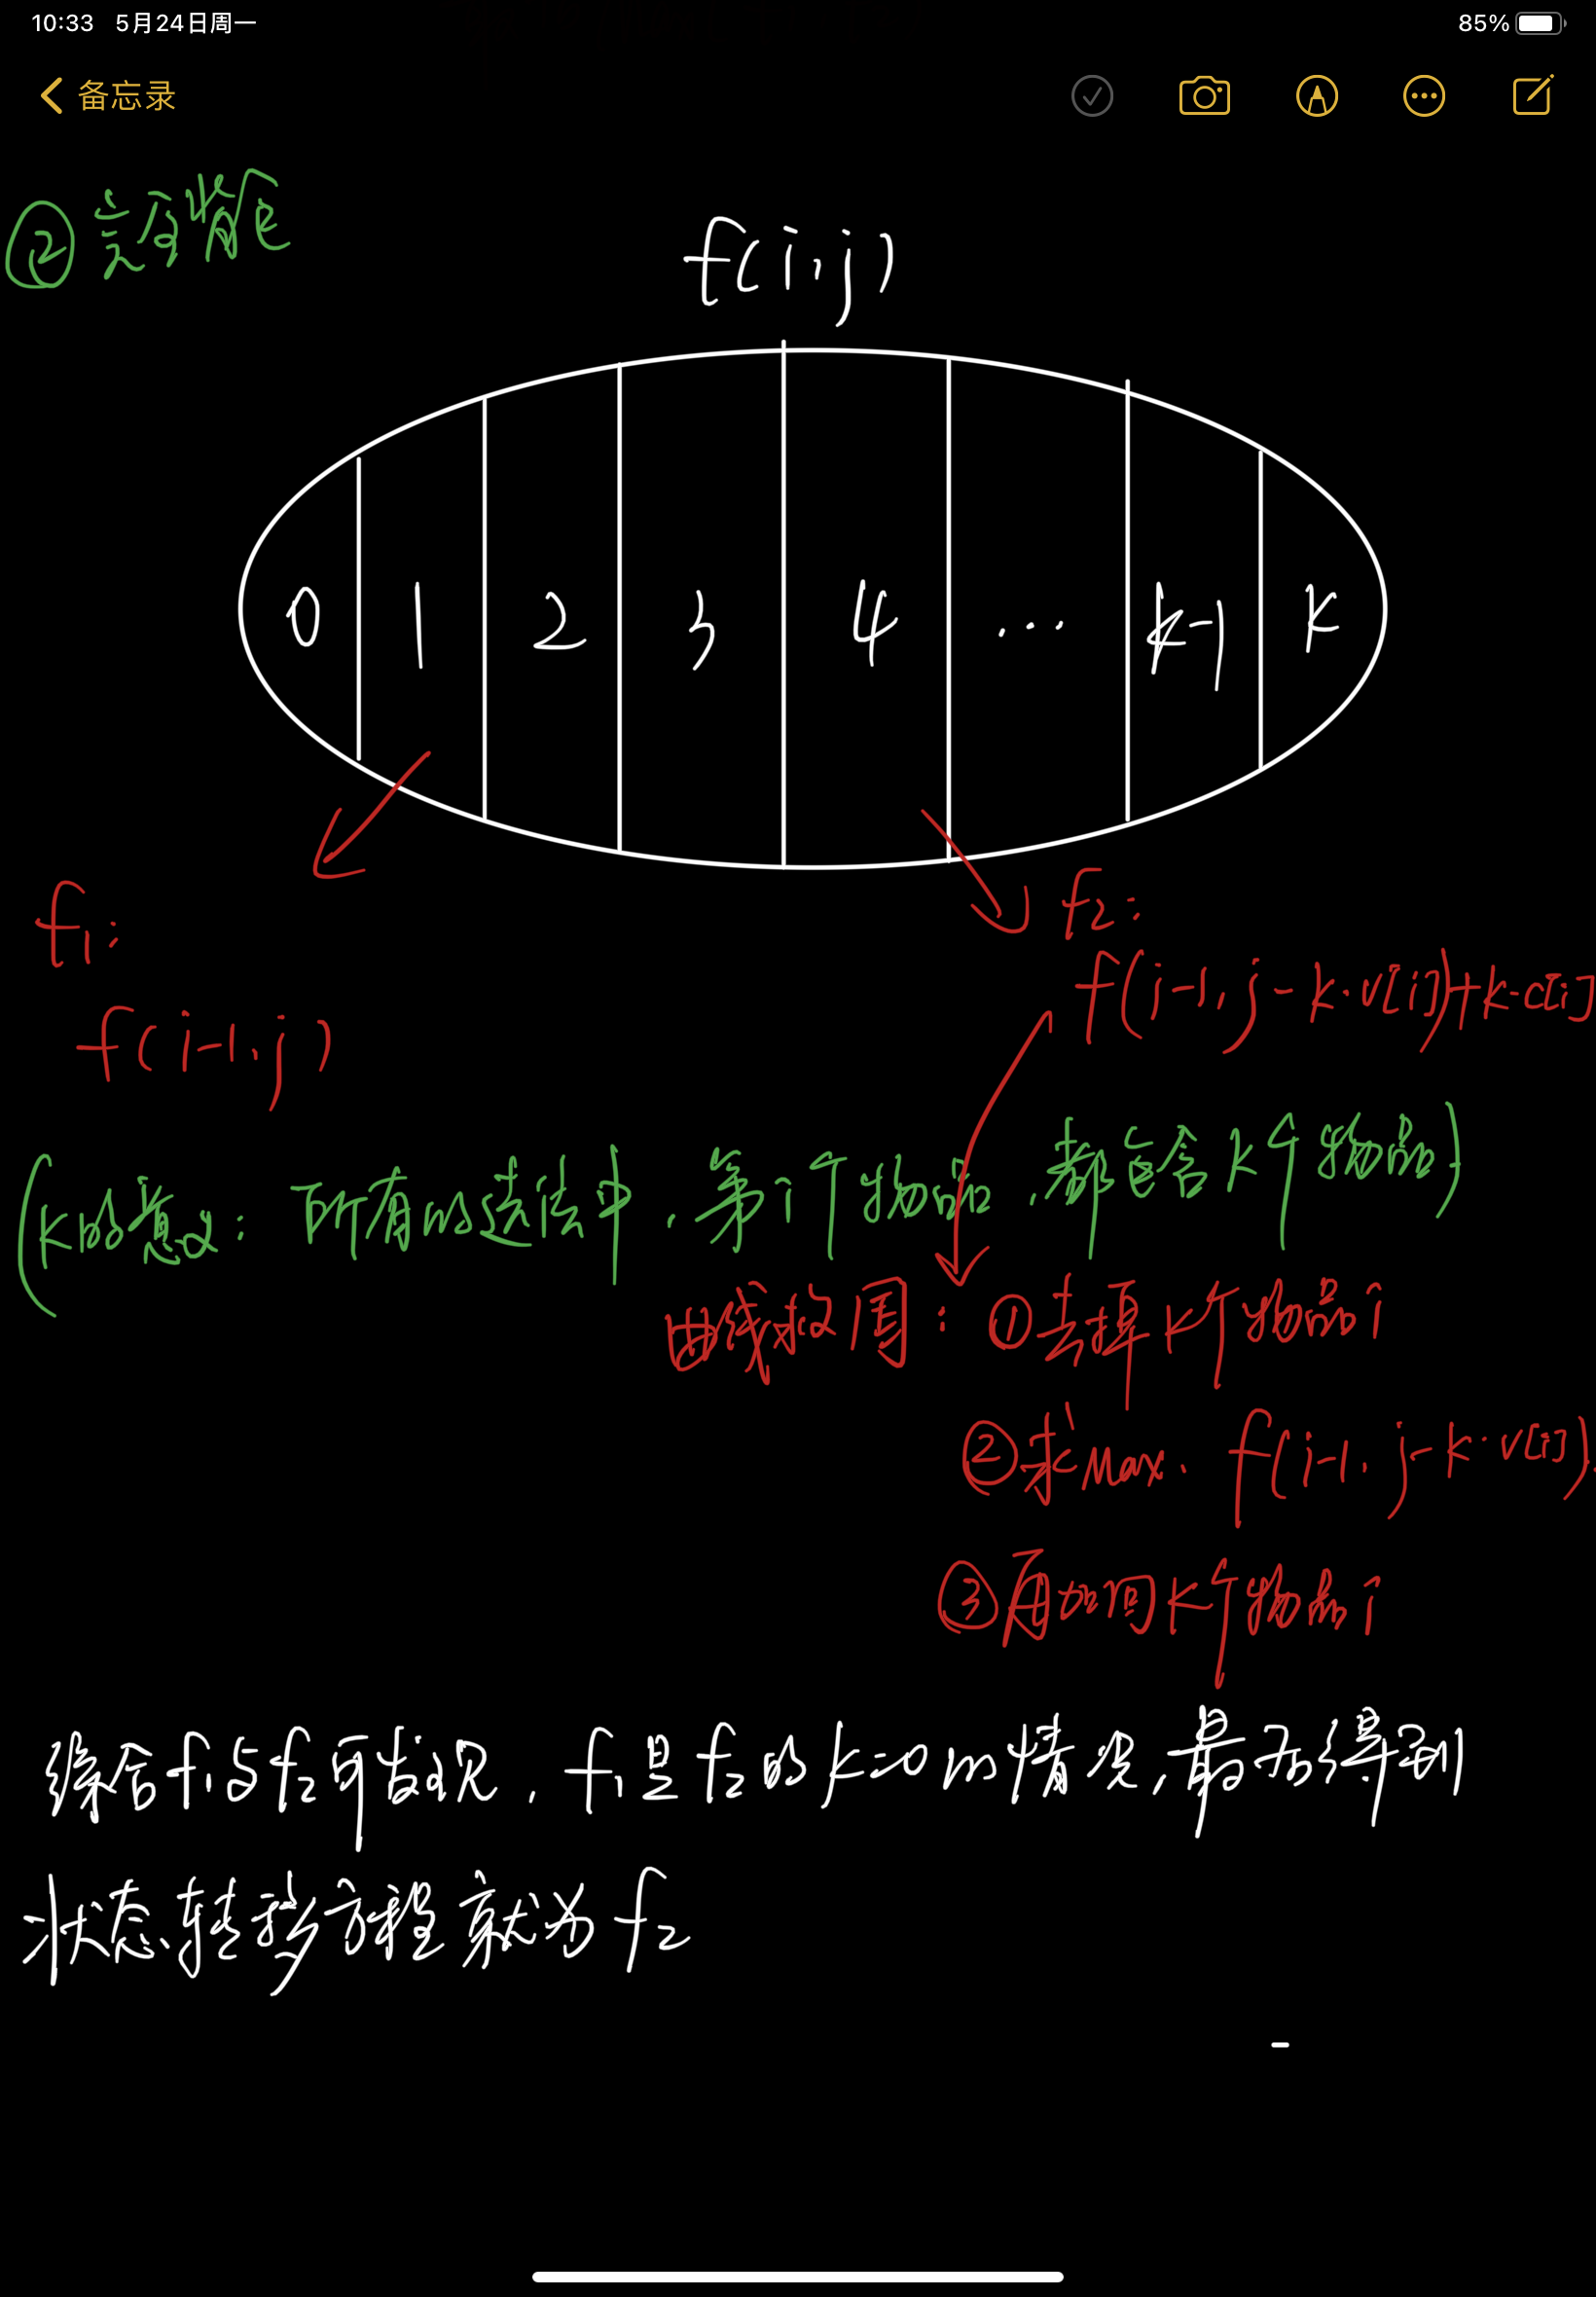 10:33 5月24日周一
85%
备忘录
② 完全背包
f(i,j)
0 1 2 3 4 ... k-1 k
f1:
f(i-1,j)
f2:
f(i-1,j-k·v[i])+k·c[i]
(k的意义:所有的选法中,第i个物品,都包含k个物品)
曲线救国:①去掉k个物品i
②求Max. f(i-1,j-k·v[i]).
③再加回k个物品i
综合f1与f2可发现,f1是f2的k=0的情况,最后得到
状态转移方程就为f2